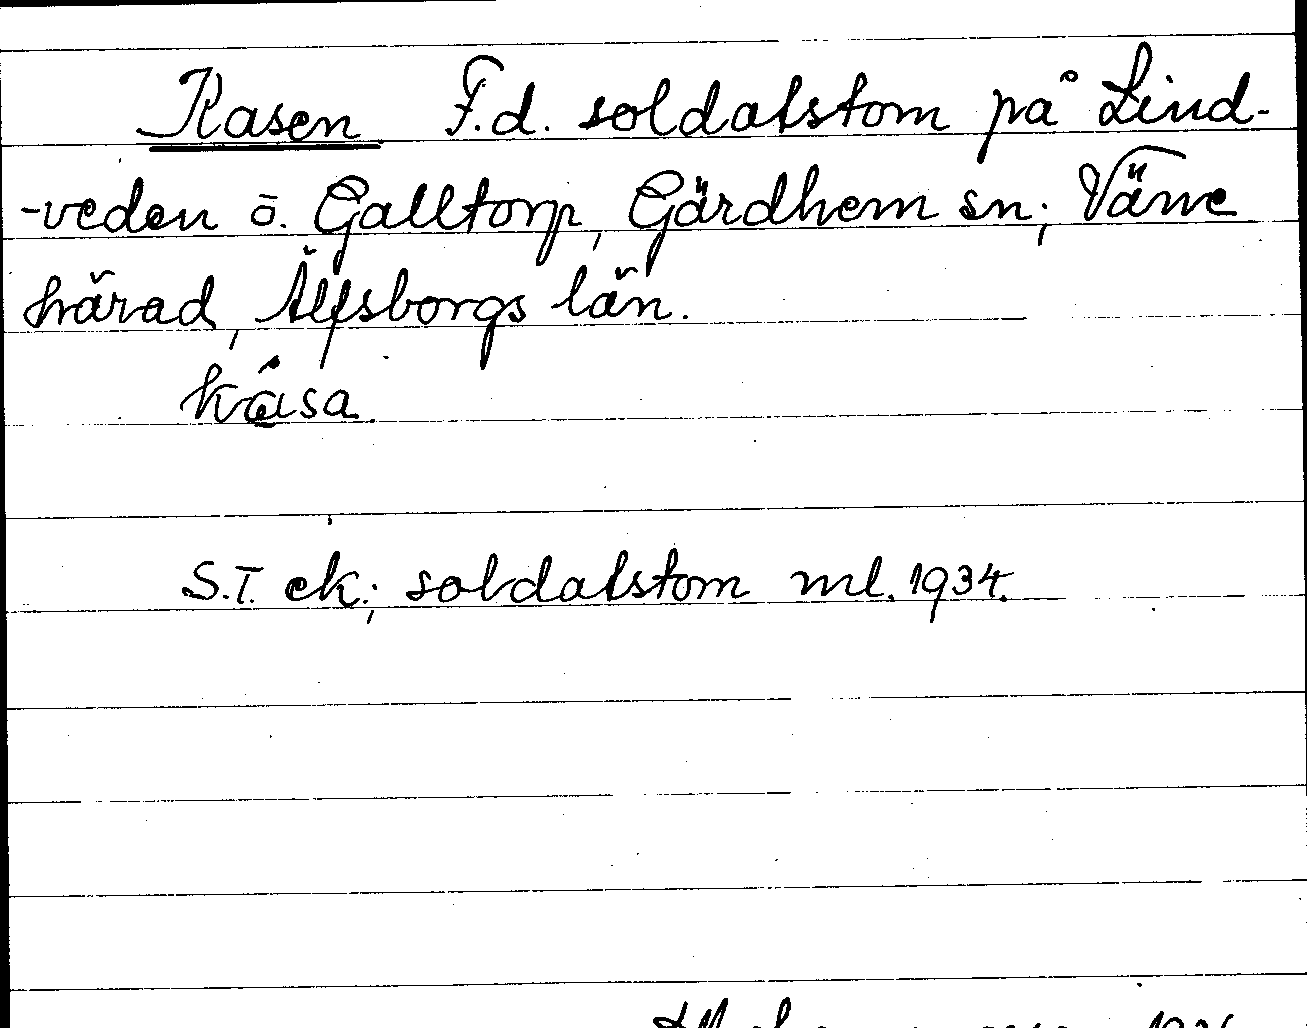 Kasen F.d. soldatstom på Lind-
-veden ö. Galltorp, Gärdhem sn; Väne
härad, Älfsborgs län.
kåsa.
S.T. ek.; soldatstom ml. 1934.